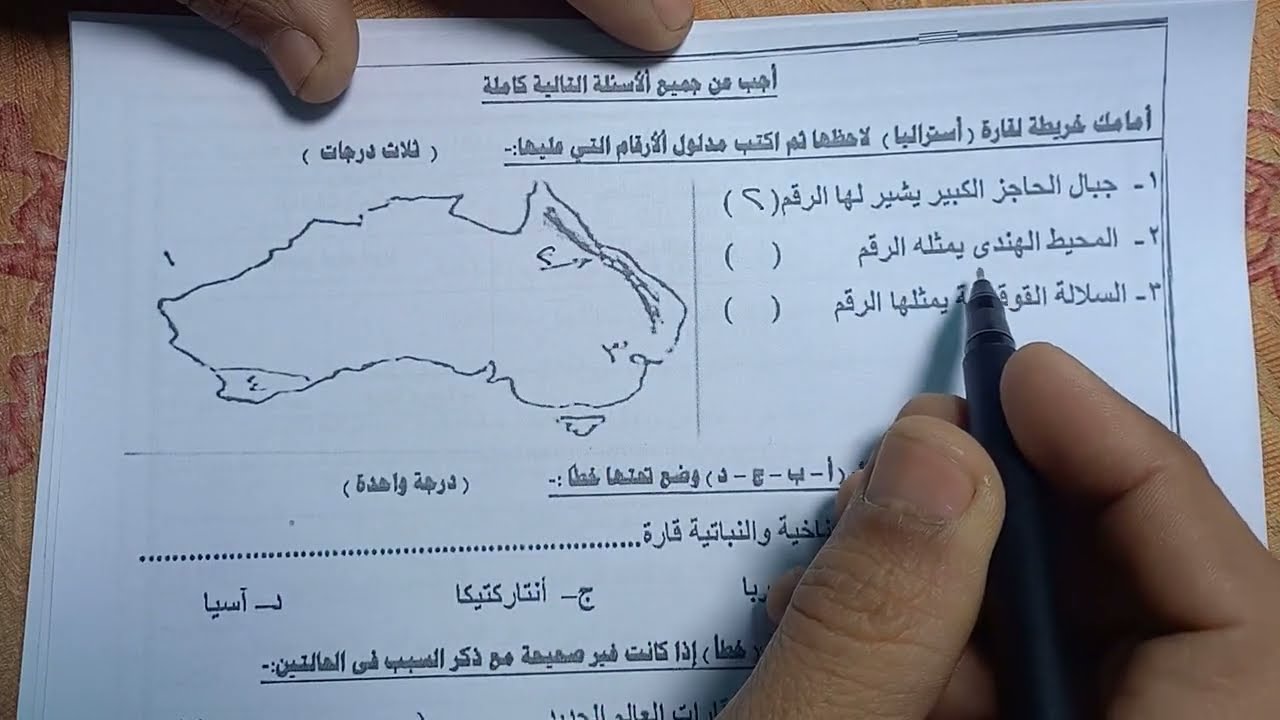 أجب عن جميع الأسئلة التالية كاملة
أمامك خريطة لقارة ( أستراليا ) لاحظها ثم اكتب مدلول الأرقام التي عليها:-
( ثلاث درجات )
١- جبال الحاجز الكبير يشير لها الرقم (٢)
٢- المحيط الهندى يمثله الرقم ( )
٣- السلالة يمثلها الرقم ( )
١
٢
٣
٤
( أ - ب - ج - د ) وضع تحتها خطا :-
( درجة واحدة )
والنباتية قارة ..........
ج- أنتاركتيكا
د- آسيا
(خطأ) إذا كانت غير صحيحة مع ذكر السبب فى الحالتين:-
العالم الجديد